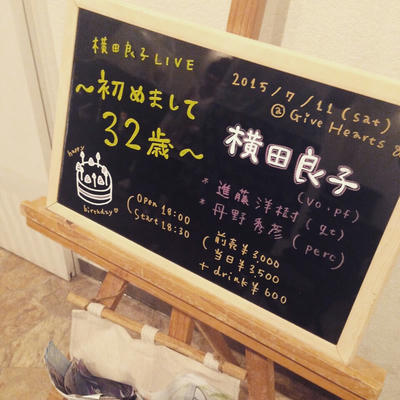 横田良子 LIVE
〜初めまして
32歳〜
happy
birthday♡
(Open 18:00
Start 18:30)
2015/7/11(sat)
@Give Hearts &
横田良子 (vo.pf)
*進藤洋樹 (gt)
*丹野秀彦 (perc)
(前売¥3,000
当日¥3,500
+drink¥600)